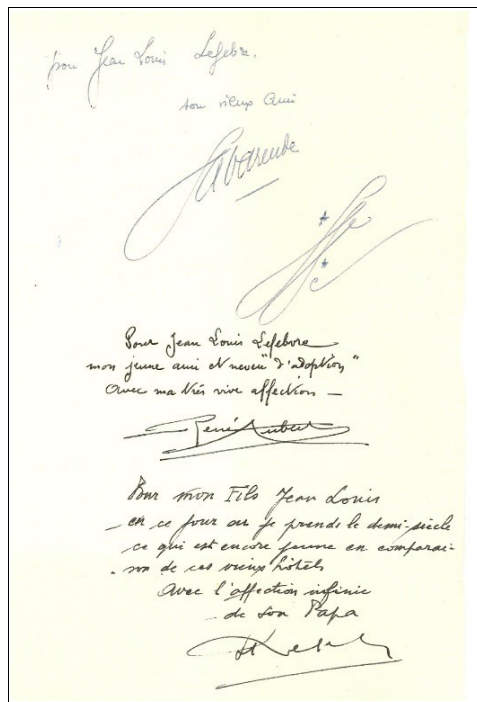 pour Jean Louis Lefebvre.
son vieux Ami
La Varende
Pour Jean Louis Lefebvre
mon jeune ami et neveu "d'adoption"
Avec ma très vive affection —
René Aubert
Pour mon Fils Jean Louis
en ce jour où je prends le demi-siècle
ce qui est encore jeune en comparai-
son de ces vieux hôtels
Avec l'affection infinie
de son Papa